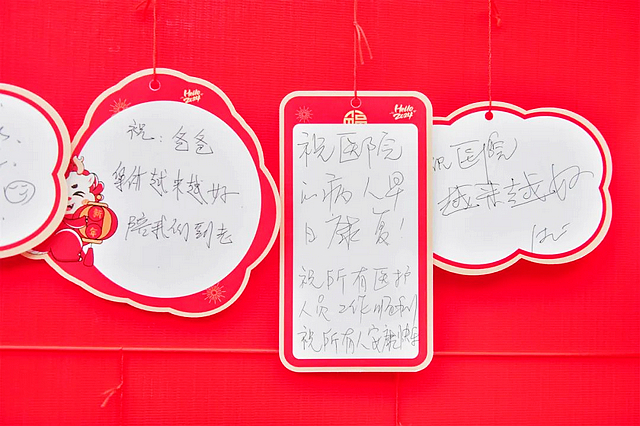 Hello 2024
祝：爸爸
身体越来越好
陪我们到老
新年
Hello 2024
福
祝医院
的病人早
日康复！
祝所有医护
人员工作顺利
祝所有人安康快乐
祝医院
越来越好